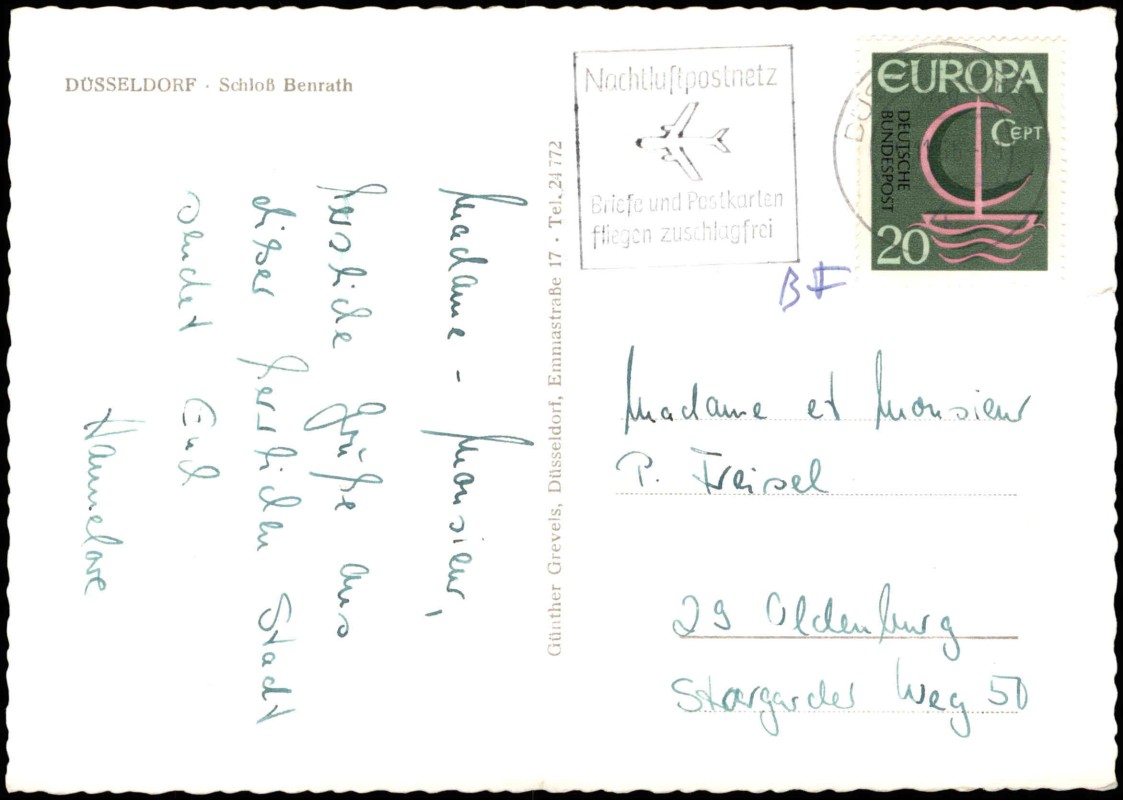 DÜSSELDORF · Schloß Benrath
Madame - Monsieur,
herzliche Grüße aus
dieser herrlichen Stadt
sendet Euch
Hannelore
Günther Grevels, Düsseldorf, Emmastraße 17 · Tel. 24 772
Nachtluftpostnetz
Briefe und Postkarten
fliegen zuschlagfrei
EUROPA
CEPT
DEUTSCHE
BUNDESPOST
20
BF
Madame et Monsieur
P. Freisel
29 Oldenburg
Stargarder Weg 50